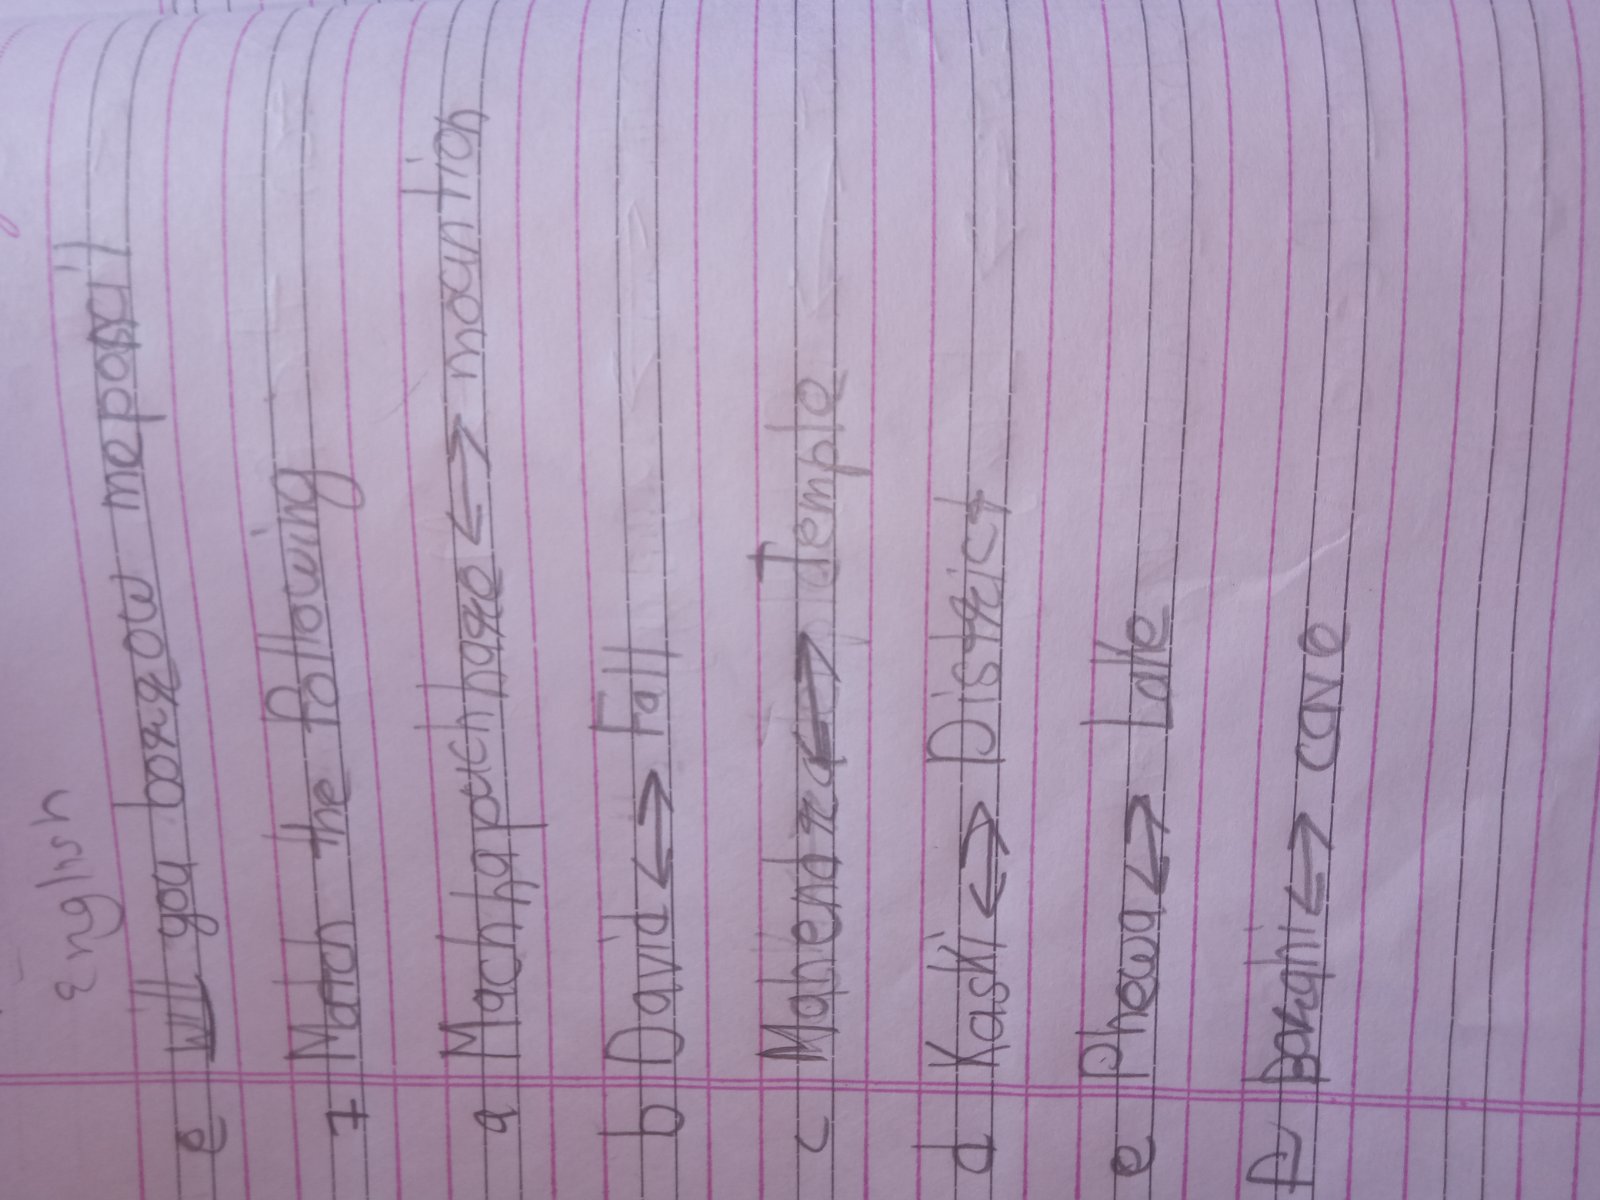 English
e will you borrow me
7 Match the following
a Machhapuchhare ↔ mountion
b David ↔ Fall
c Mahendra ↔ Temple
d Kaski ↔ District
e Phewa ↔ Lake
f ↔ cave